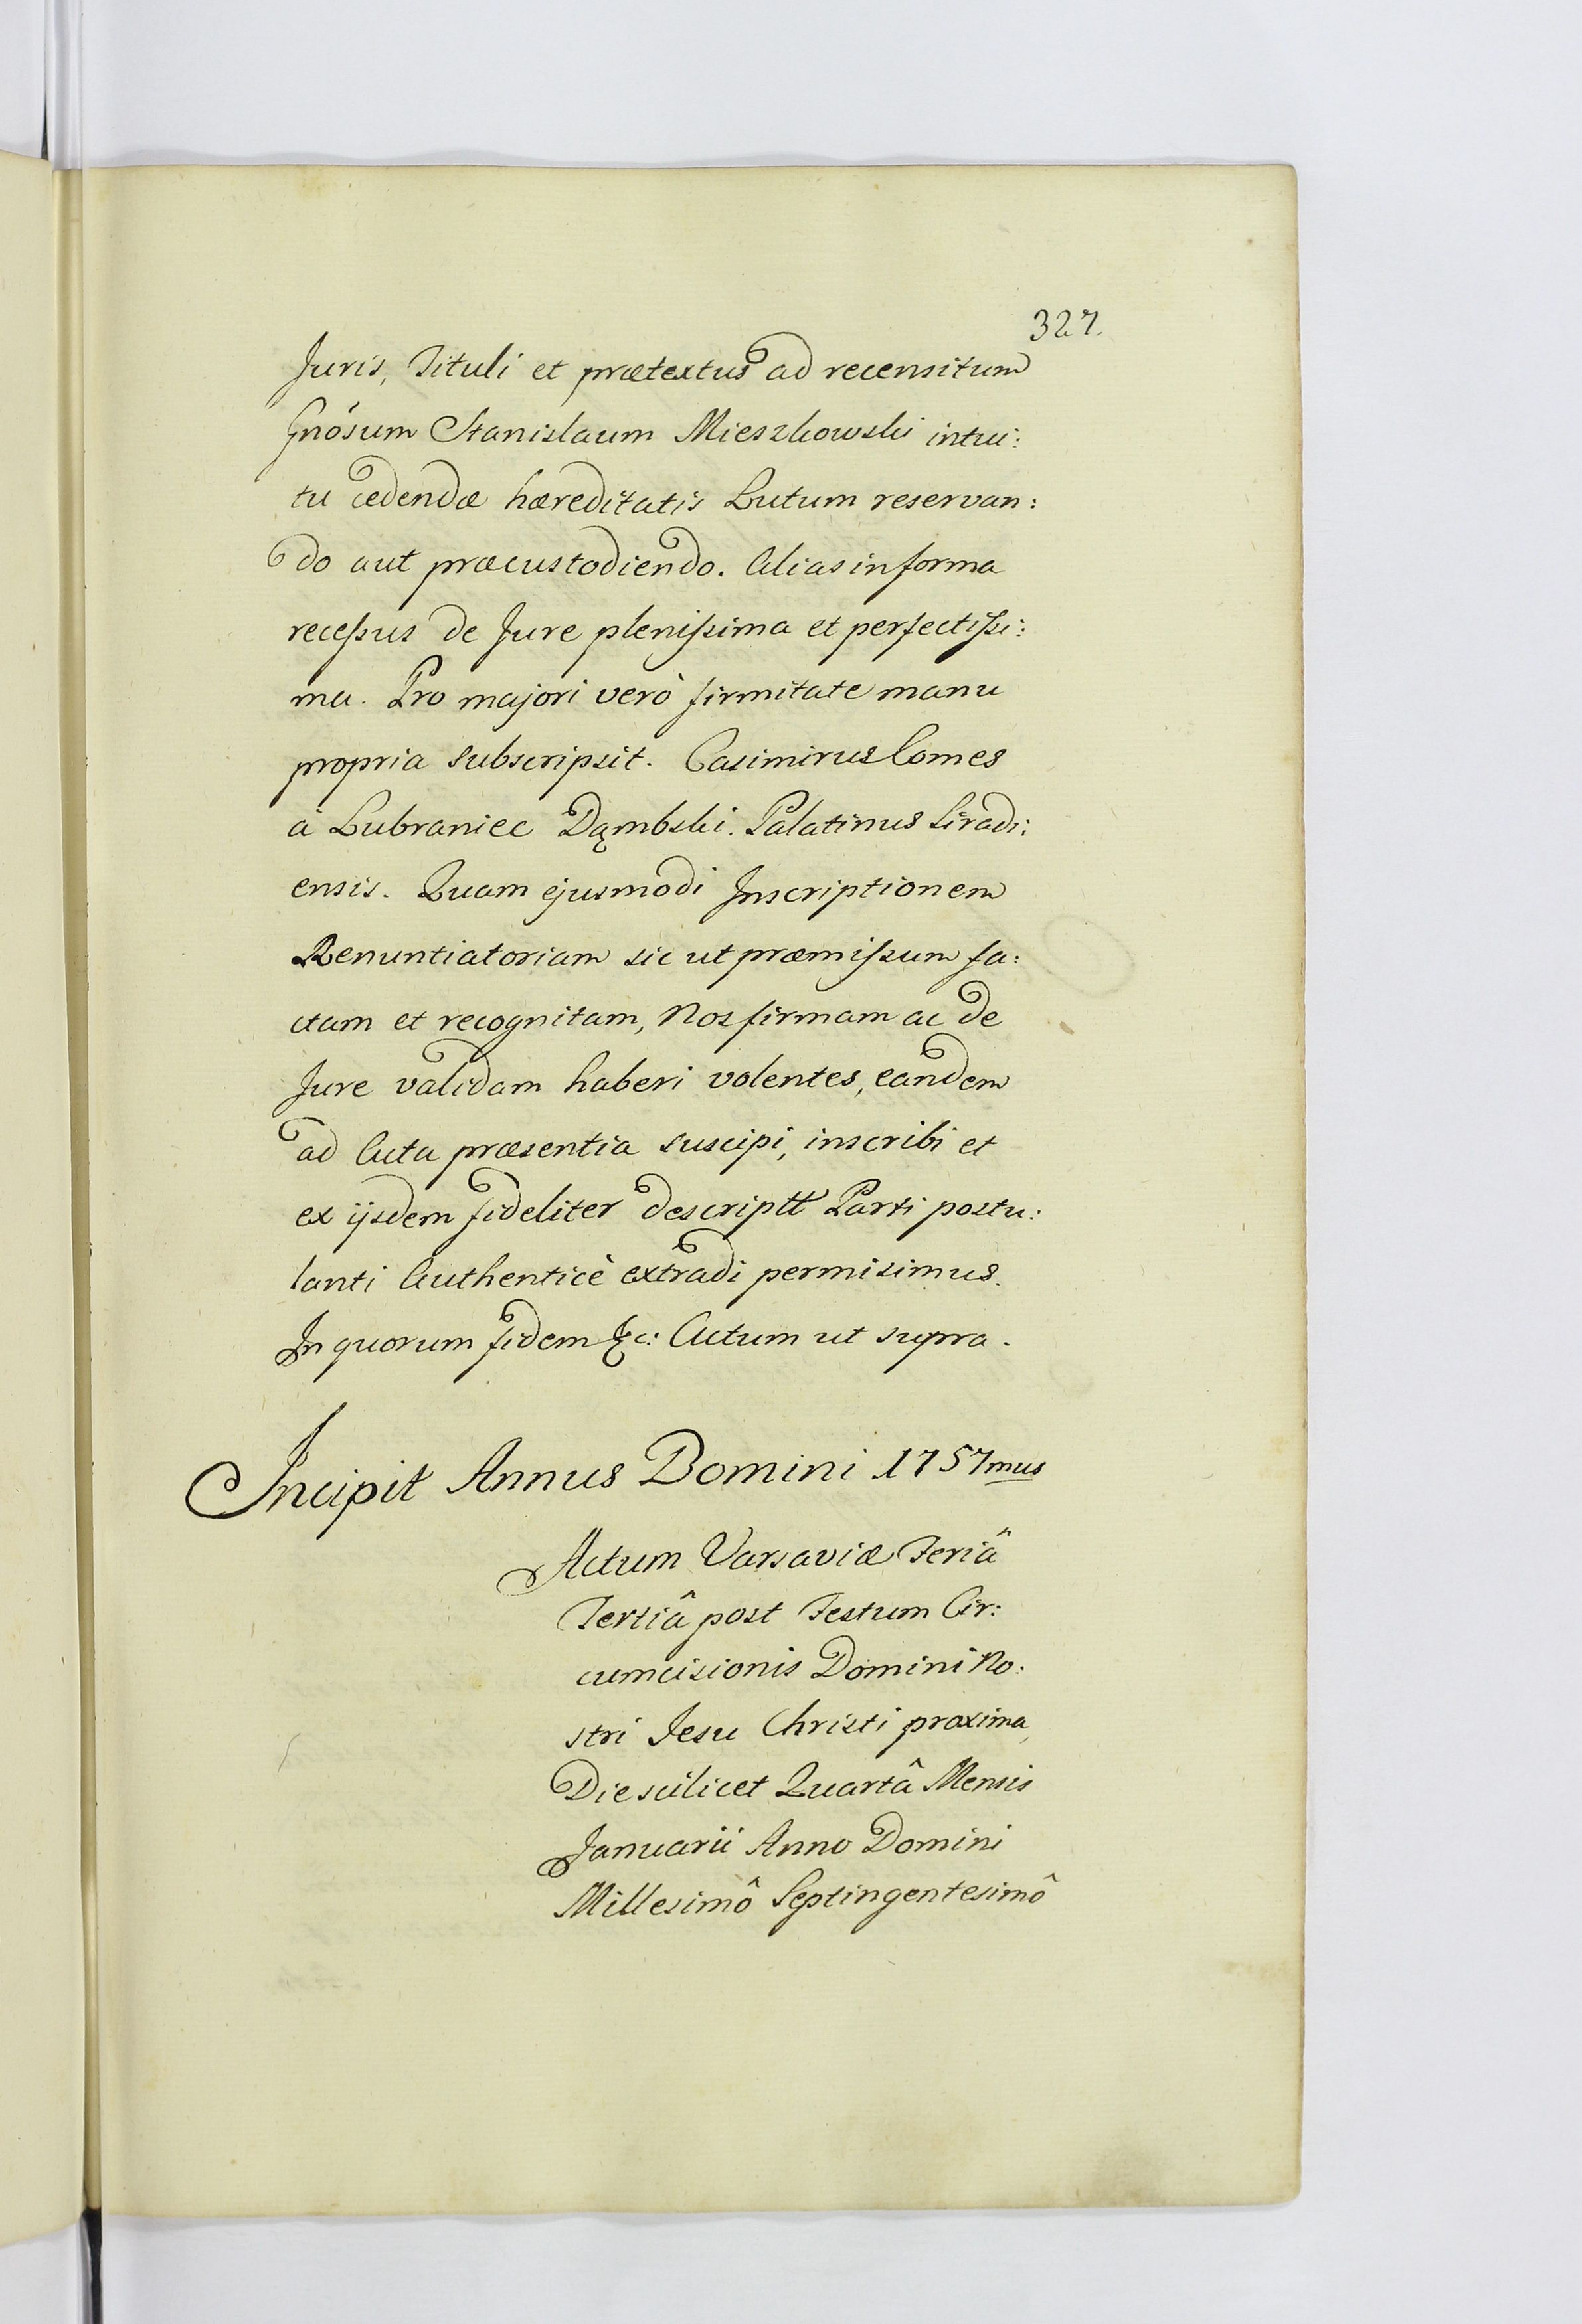 327.
Juris, Tituli et prætextus ad recensitum
Gnosum Stanislaum Mieszkowski intui:
tu cedendæ hæreditatis Lutum reservan:
do aut præcustodiendo. Alias in forma
recessus de Jure plenissima et perfectissi:
ma. Pro majori verò firmitate manu
propria subscripsit. Casimirus Comes
à Lubraniec Dąmbski. Palatinus Siradi:
ensis. Quam ejusmodi Inscriptionem
Renuntiatoriam sic ut præmissum fa:
ctam et recognitam, Nos firmam ac de
Jure validam haberi volentes, eandem
ad Acta præsentia suscipi, inscribi et
ex ijsdem fideliter descriptt Parti postu:
lanti Authenticè extradi permisimus.
In quorum fidem &c: Actum ut supra.
Incipit Annus Domini 1757mus
Actum Varsaviæ Feriâ
Tertiâ post Festum Cir:
cumcisionis Domini No:
stri Jesu Christi proxima,
Die scilicet Quartâ Mensis
Januarii Anno Domini
Millesimô Septingentesimô